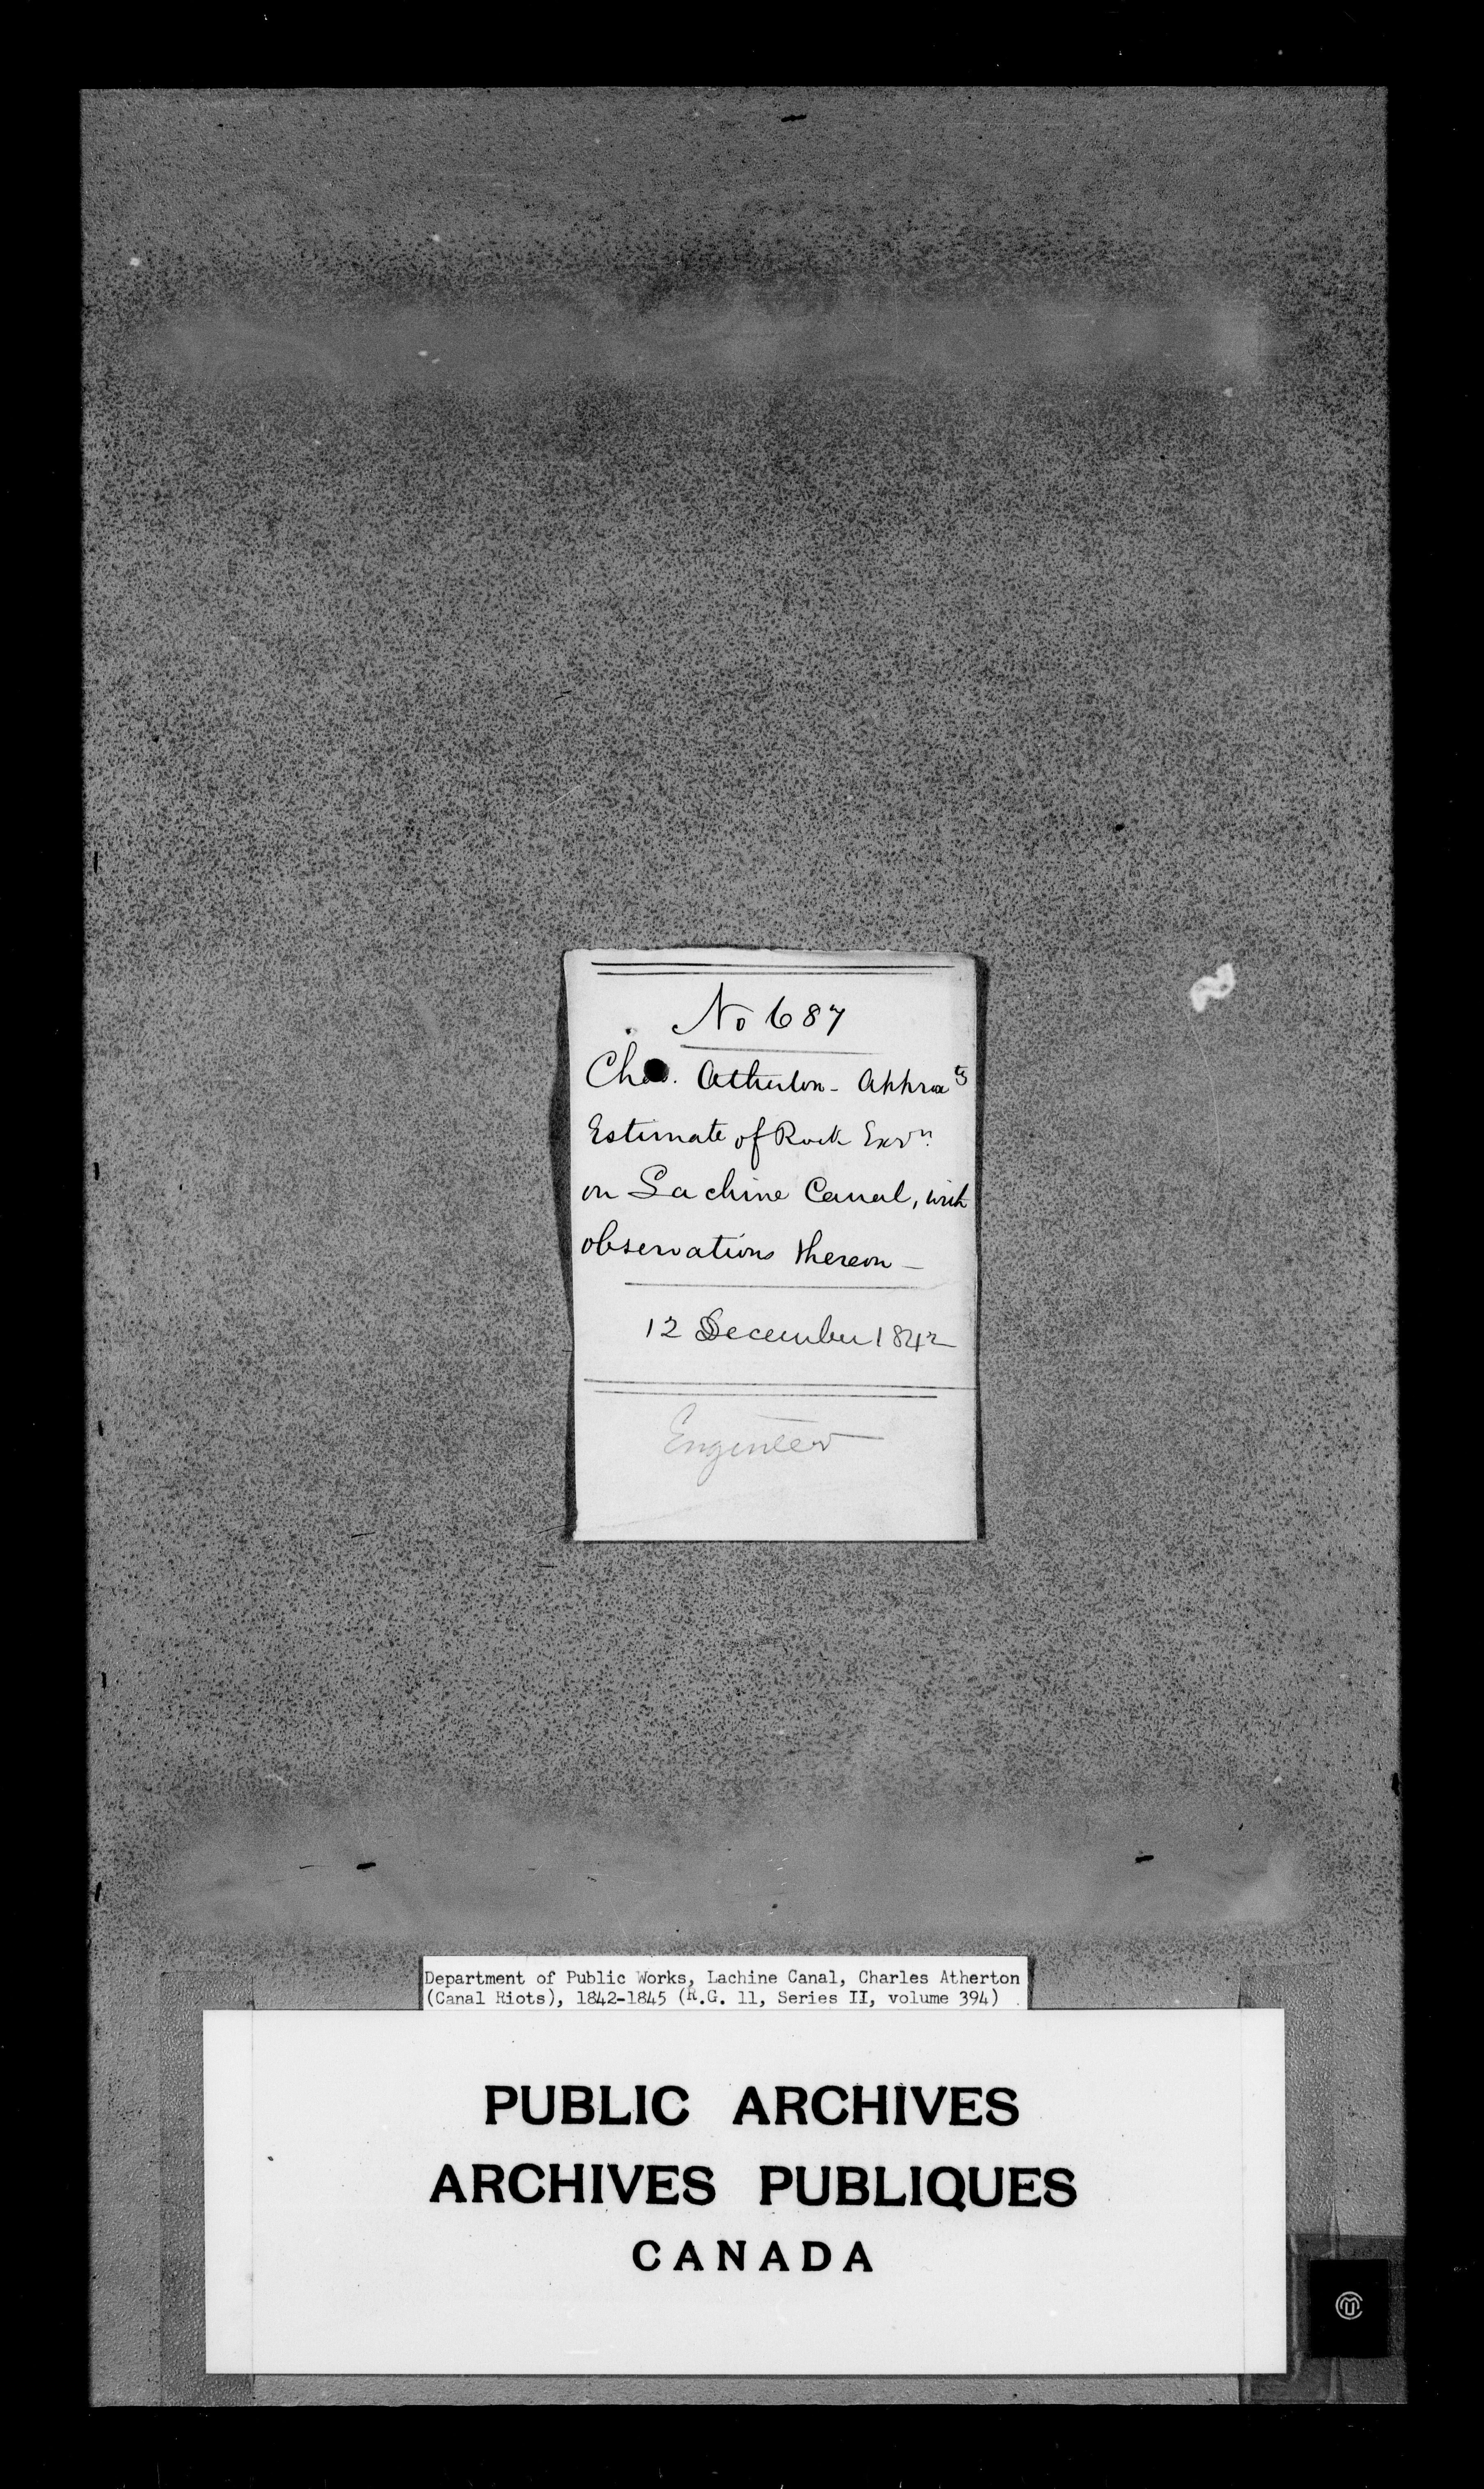 No 687
Chas. Atherton - Approx te
Estimate of Rock Exvn.
on Lachine Canal, with
observations thereon -
12 December 1842
Engineer
Department of Public Works, Lachine Canal, Charles Atherton
(Canal Riots), 1842-1845 (R.G. 11, Series II, volume 394)
PUBLIC ARCHIVES
ARCHIVES PUBLIQUES
CANADA